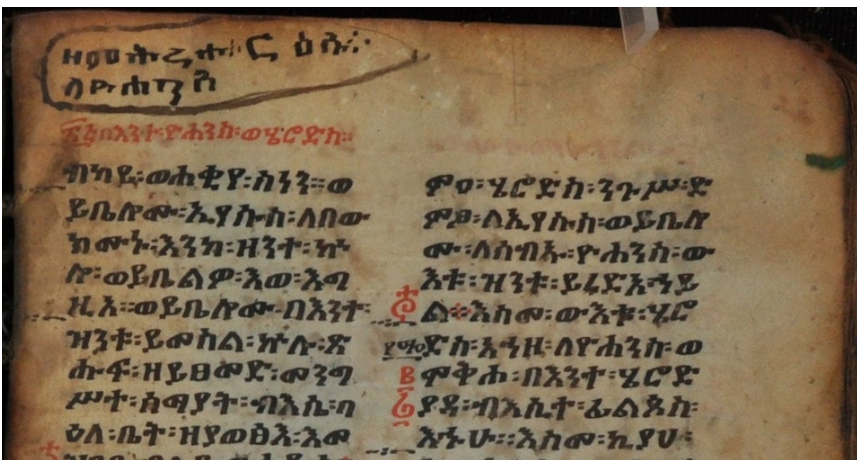 ለዮሐንስ
በእንተ፡ዮሐንስ፡ወሄሮድስ።
ብካይ፡ወሐቂየ፡ስነን።ወ
ይቤሎሙ፡ኢየሱስ፡ለበው
ክሙኑ፡እንከ፡ዘንተ፡ኵ
ሎ፡ወይቤልዎ፡እወ፡እግ
ዚአ።ወይቤሎሙ፡በእንተ፡
ዝንቱ፡ይመስል፡ኵሉ፡ጸ
ሐፍ፡ዘይፀመድ፡መንግ
ሥተ፡ሰማያት፡ብእሴ፡ባ
ዕለ፡ቤት፡ዘያወፅእ፡እመ
ምዐ፡ሄሮድስ፡ንጉሥ፡ድ
ምፀ፡ለኢየሱስ፡ወይቤሎ
ሙ፡ለሰብኡ፡ዮሐንስ፡ው
እቱ፡ዝንቱ፡ይረድአኀይ
ል።እስመ፡ውእቱ፡ሄሮ
ድስ፡አኀዞ፡ለዮሐንስ፡ወ
ሞቅሖ፡በእንተ፡ሄሮድ
ያዳ፡ብእሲተ፡ፊልጶስ፡
እኁሁ።እስመ፡ኪያሃ፡